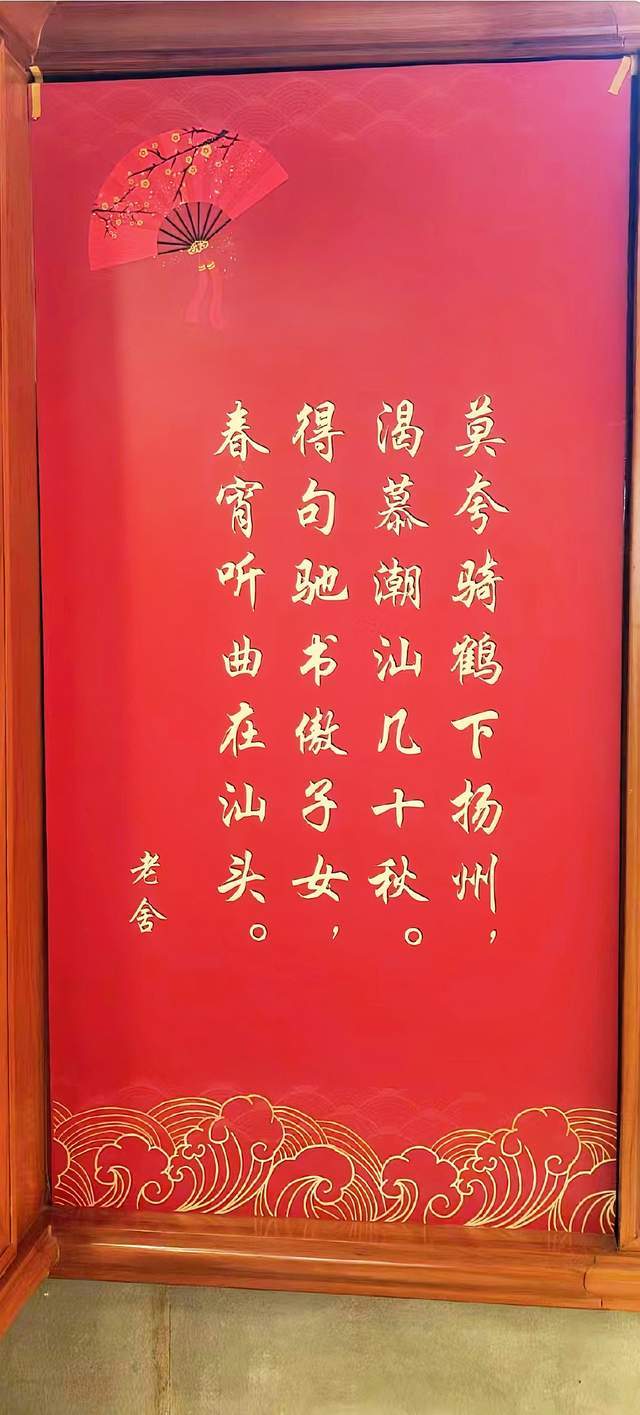 莫夸骑鹤下扬州，
渴慕潮汕几十秋。
得句驰书傲子女，
春宵听曲在汕头。
老舍